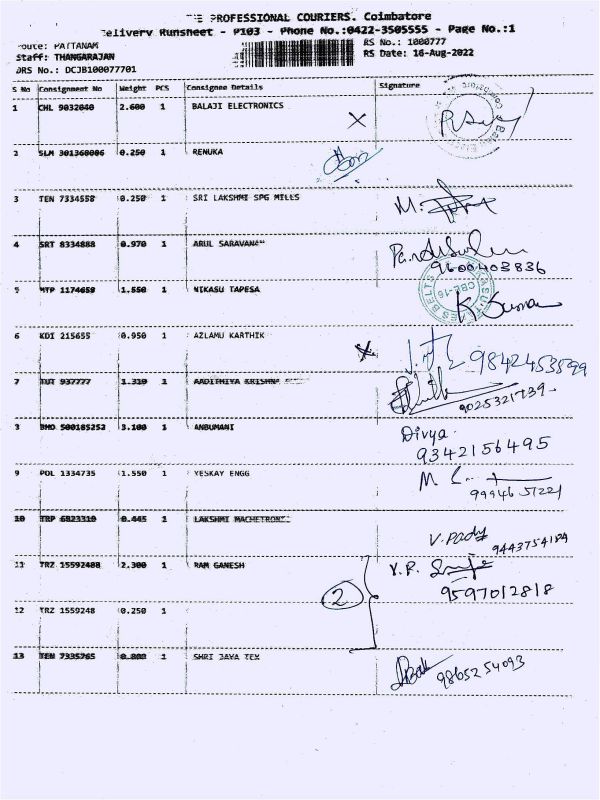 THE PROFESSIONAL COURIERS. Coimbatore
Delivery Runsheet - P103 - Phone No.:0422-3505555 - Page No.:1
Route: PATTANAM
RS No.: 1000777
Staff: THANGARAJAN
RS Date: 16-Aug-2022
DRS No.: DCJB100077701
S No Consignment No Weight PCS Consignee Details Signature
1 CHL 9032040 2.600 1 BALAJI ELECTRONICS
2 SLM 301360006 0.250 1 RENUKA
3 TEN 7334558 0.250 1 SRI LAKSHMI SPG MILLS
4 SRT 8334888 0.970 1 ARUL SARAVANA
9600403836
5 MTP 1174659 1.550 1 NIKASU TAPESA
CBE-16
K. Kumar
6 KDI 215655 0.950 1 AZLAMU KARTHIK
9842453599
7 TUT 937777 1.310 1 AADITHIYA KRISHNA
9025321739
8 BMO 500185252 3.100 1 ANBUMANI
Divya.
9342156495
9 POL 1334735 1.550 1 YESKAY ENGG
9994651221
10 TRP 6823310 0.445 1 LAKSHMI MACHETRONIC
V. Pady
11 TRZ 15592488 2.300 1 RAM GANESH
9597012818
2
12 TRZ 1559248 0.250 1
13 TEN 7335765 0.800 1 SHRI JAYA TEX
9865254093